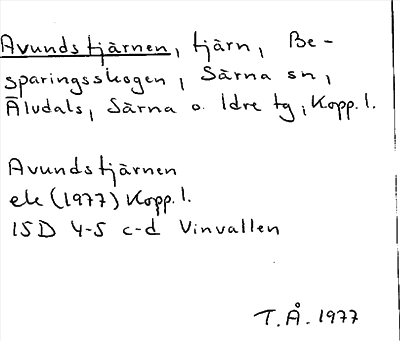 Avundstjärnen, tjärn, Be-
sparingsskogen, Särna sn,
Älvdals, Särna o. Idre tg, Kopp. l.
Avundstjärnen
ek (1977) Kopp. l.
15D 4-5 c-d Vinvallen
T.Å. 1977